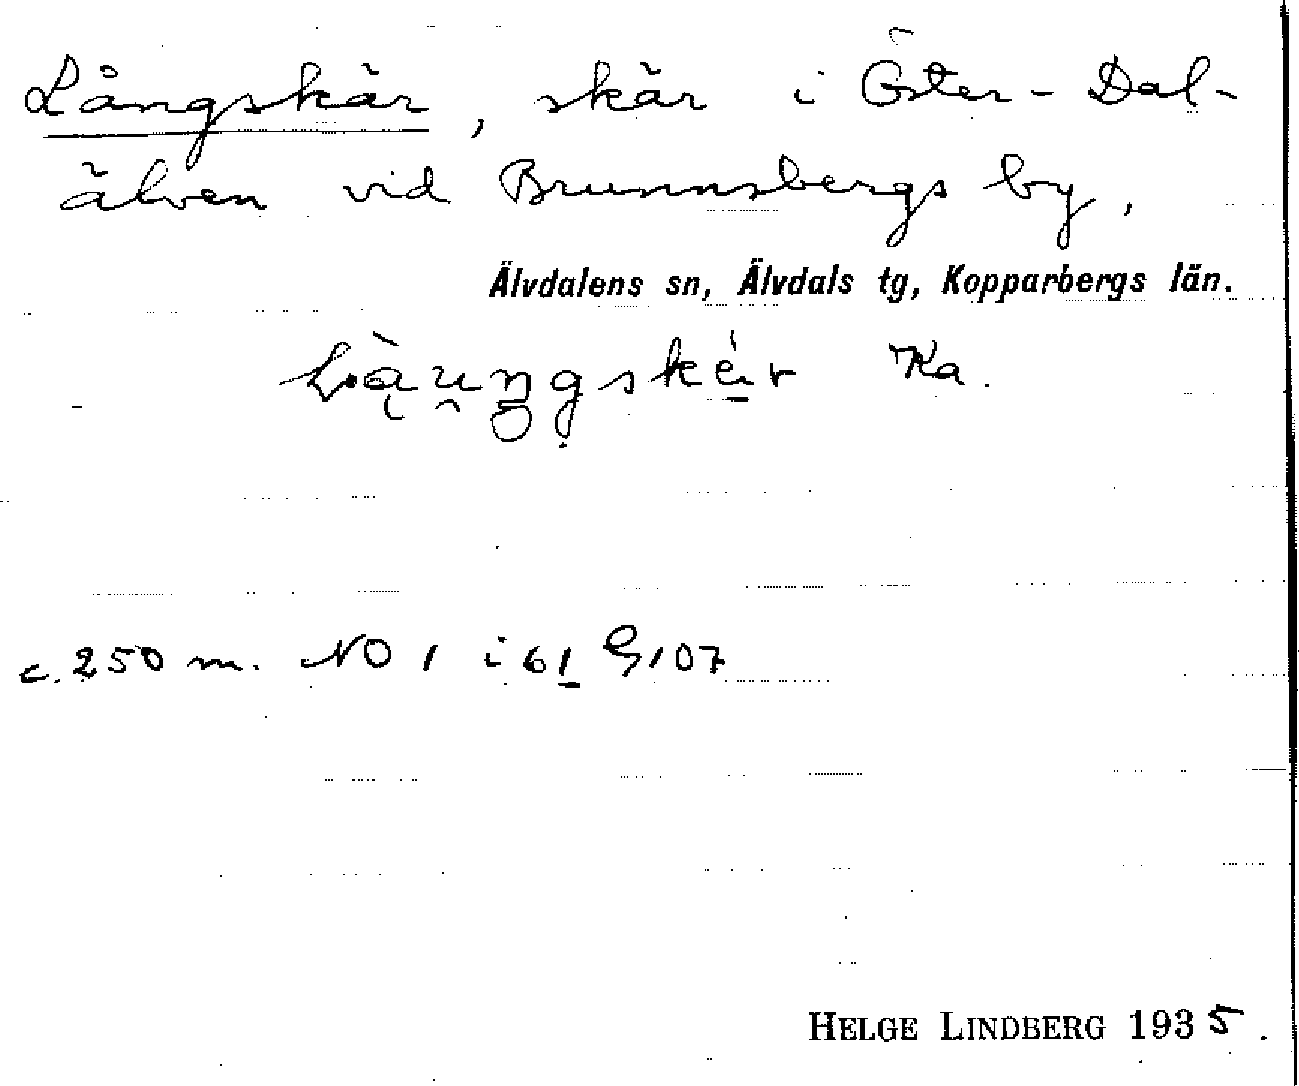 Långskär, skär i Öster-Dal-
älven vid Brunnsbergs by,
Älvdalens sn, Älvdals tg, Kopparbergs län.
Ka.
c. 250 m. NO 1 i 61 G 107
HELGE LINDBERG 1935.